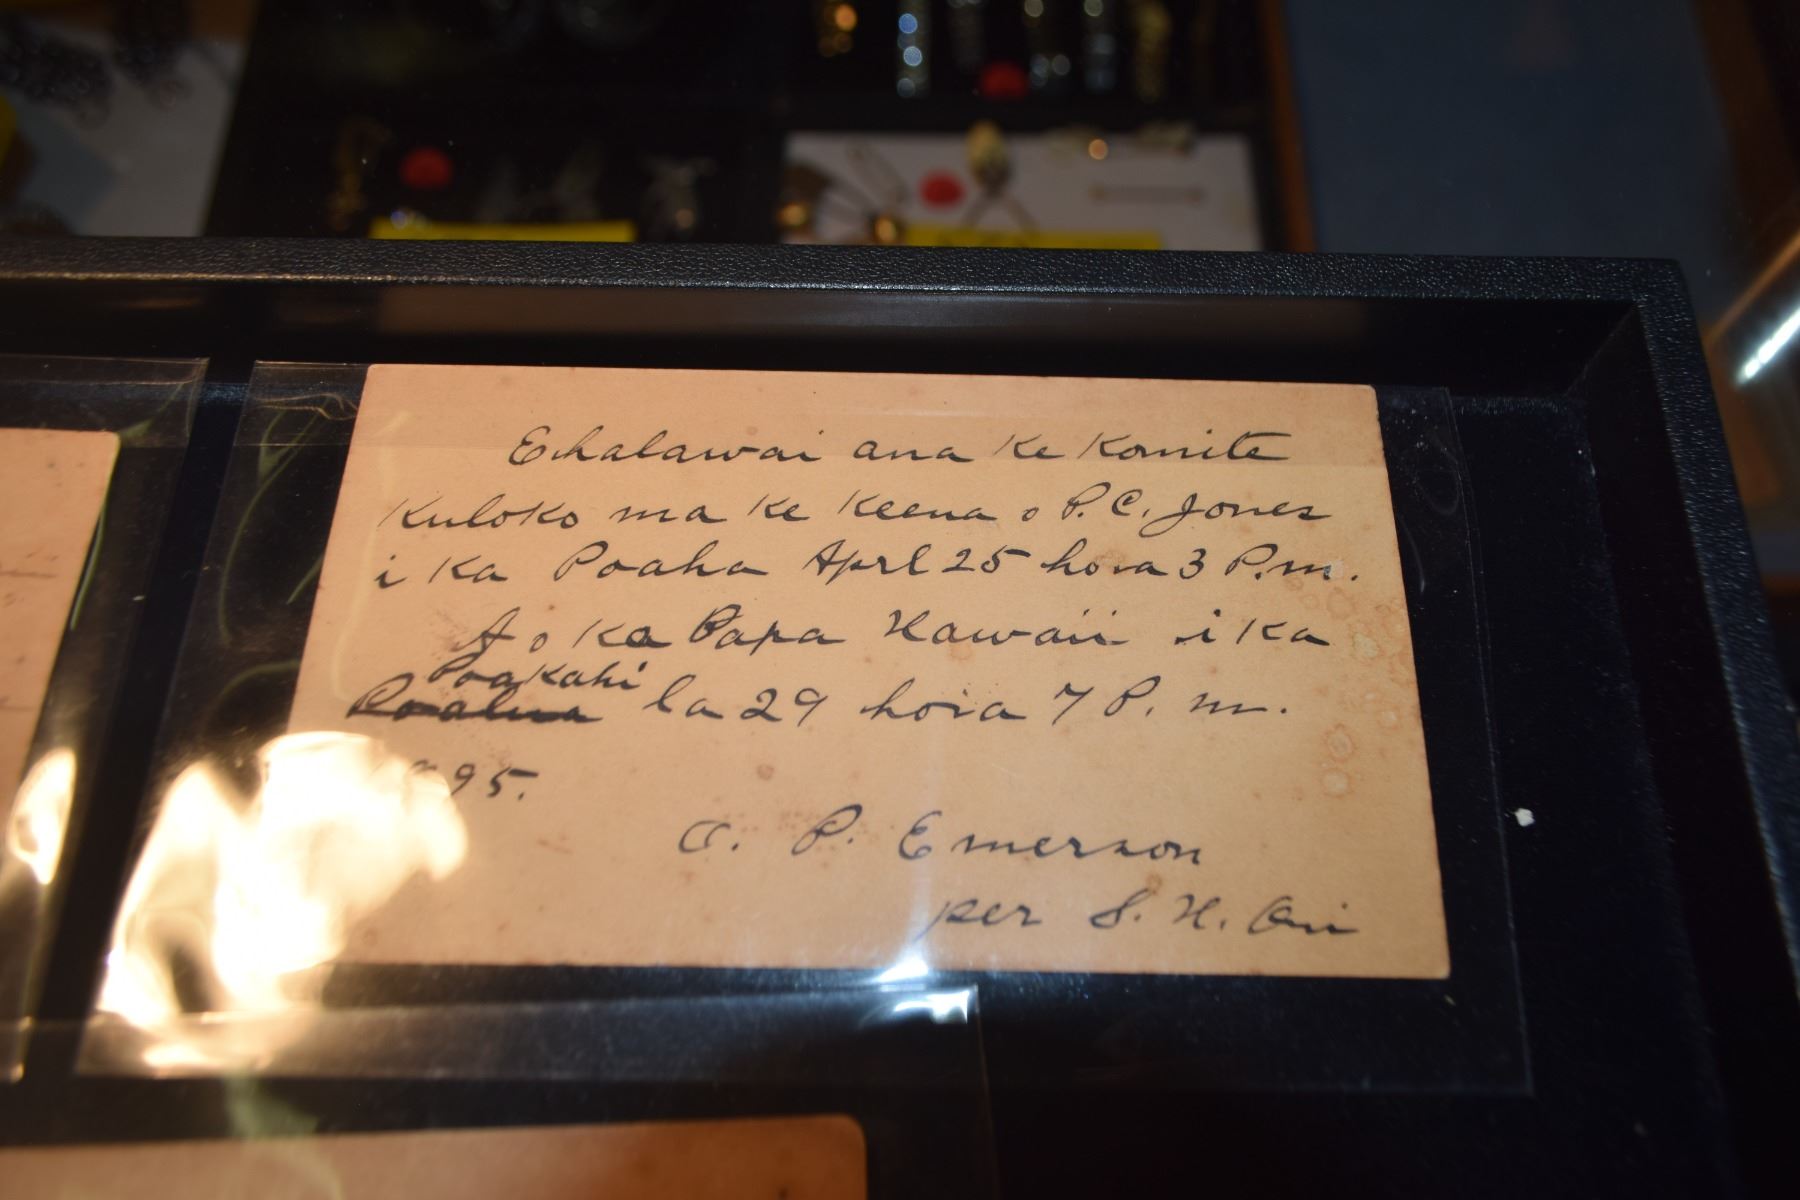 E halawai ana ke Komite
Kuloko ma ke Keena o P. C. Jones
i ka Poaha Aprl 25 hora 3 P.m.
A o ka Papa Hawaii i ka
Poakahi
Poalua la 29 hora 7 P. m.
95.
O. P. Emerson
per S. H. Oni